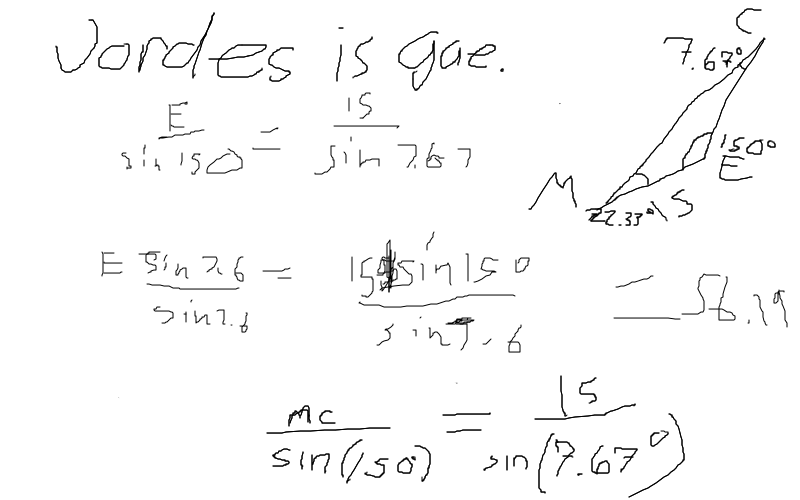 Jordes is gae.
E / sin 150 = 15 / sin 7.67
C
7.67°
150°
E
M
22.33°
15
E sin 7.6 / sin 7.6 = 15 sin 150 / sin 7.6 = 56.19
MC / sin(150) = 15 / sin(7.67°)